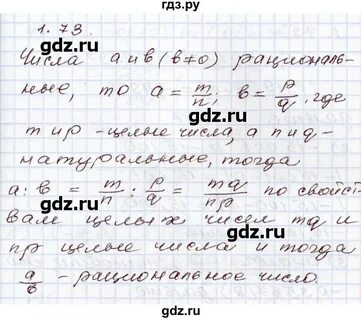 гдз.ру
1.73.
Числа а и в (в≠0) рациональ-
ные, то a = m/n, в = p/q, где
m и p - целые числа, а n и q -
натуральные, тогда
a : в = m/n : p/q = mq/np по свойст-
вам целых чисел mq и
np целые числа и тогда
a/в - рациональное число.
gdz.ru
gdz.ru
gdz.ru
gdz.ru
gdz.ru
gdz.ru
gdz.ru
gdz.ru
гдз.ру